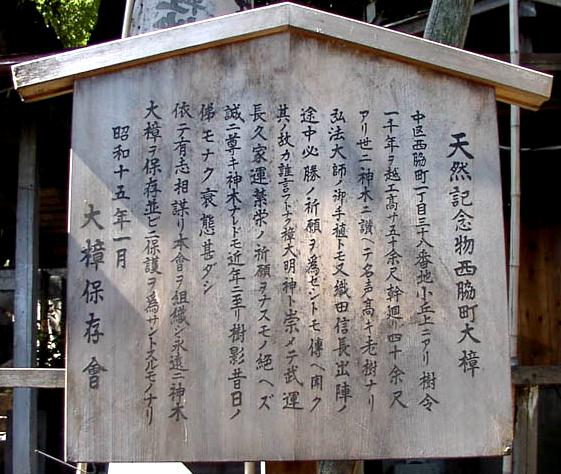 天然記念物西脇町大樟
中区西脇町一丁目二十八番地小丘上ニアリ樹令
一千年ヲ越エ高サ五十余尺幹廻リ四十余尺
アリ世ニ神木ニ讃ヘテ名声高キ老樹ナリ
弘法大師ノ御手植トモ又織田信長出陣ノ
途中必勝ノ祈願ヲ為セシトモ傳ヘ聞ク
其ノ故カ誰言フトナク樟大明神ト崇メテ武運
長久家運繁栄ノ祈願ヲナスモノ絶ヘズ
誠ニ尊キ神木ナレトモ近年ニ至リ樹影昔日ノ
俤モナク衰態甚ダシ
依テ有志相謀リ本會ヲ組織シ永遠ニ神木
大樟ヲ保存並ビニ保護ヲ為サントスルモノナリ
昭和十五年一月
大樟保存會